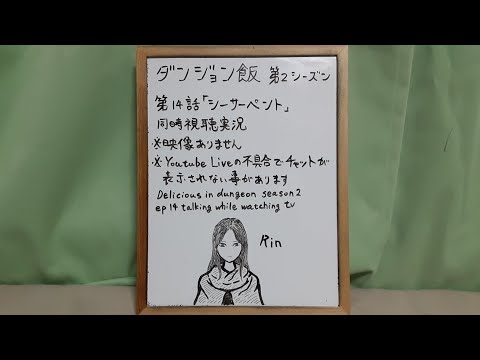 ダンジョン飯 第2シーズン
第14話「シーサーペント」
同時視聴実況
※映像ありません
※Youtube Liveの不具合でチャットが
表示されない事があります
Delicious in dungeon season2
ep 14 talking while watching tv
Rin